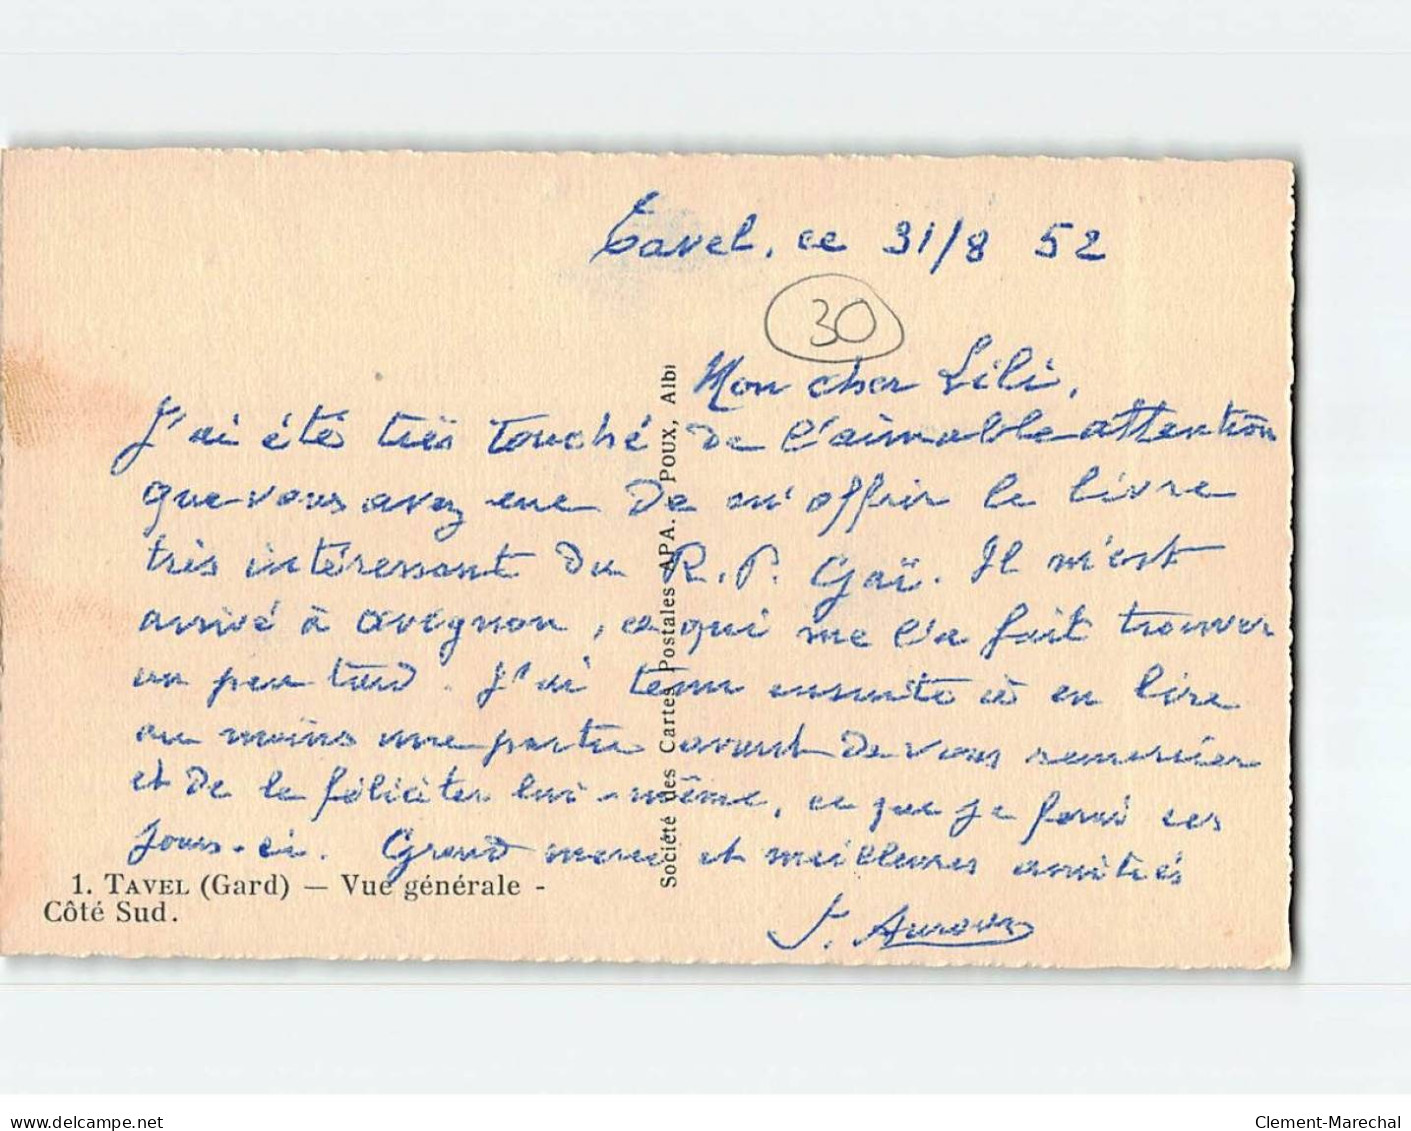 Tavel, ce 31/8 52
30
Mon cher Lili,
J'ai été très touché de l'aimable attention
que vous avez eue de m'offrir le livre
très intéressant du R.P. Gaï. Il m'est
arrivé à Avignon, ce qui me l'a fait trouver
un peu tard. J'ai tenu ensuite à en lire
au moins une partie avant de vous remercier
et de le féliciter lui-même, ce que je ferai ces
jours-ci. Grand merci et meilleures amitiés
J.
1. TAVEL (Gard) — Vue générale -
Côté Sud.
Société des Cartes Postales APA. - POUX, Albi
www.delcampe.net
Clement-Marechal